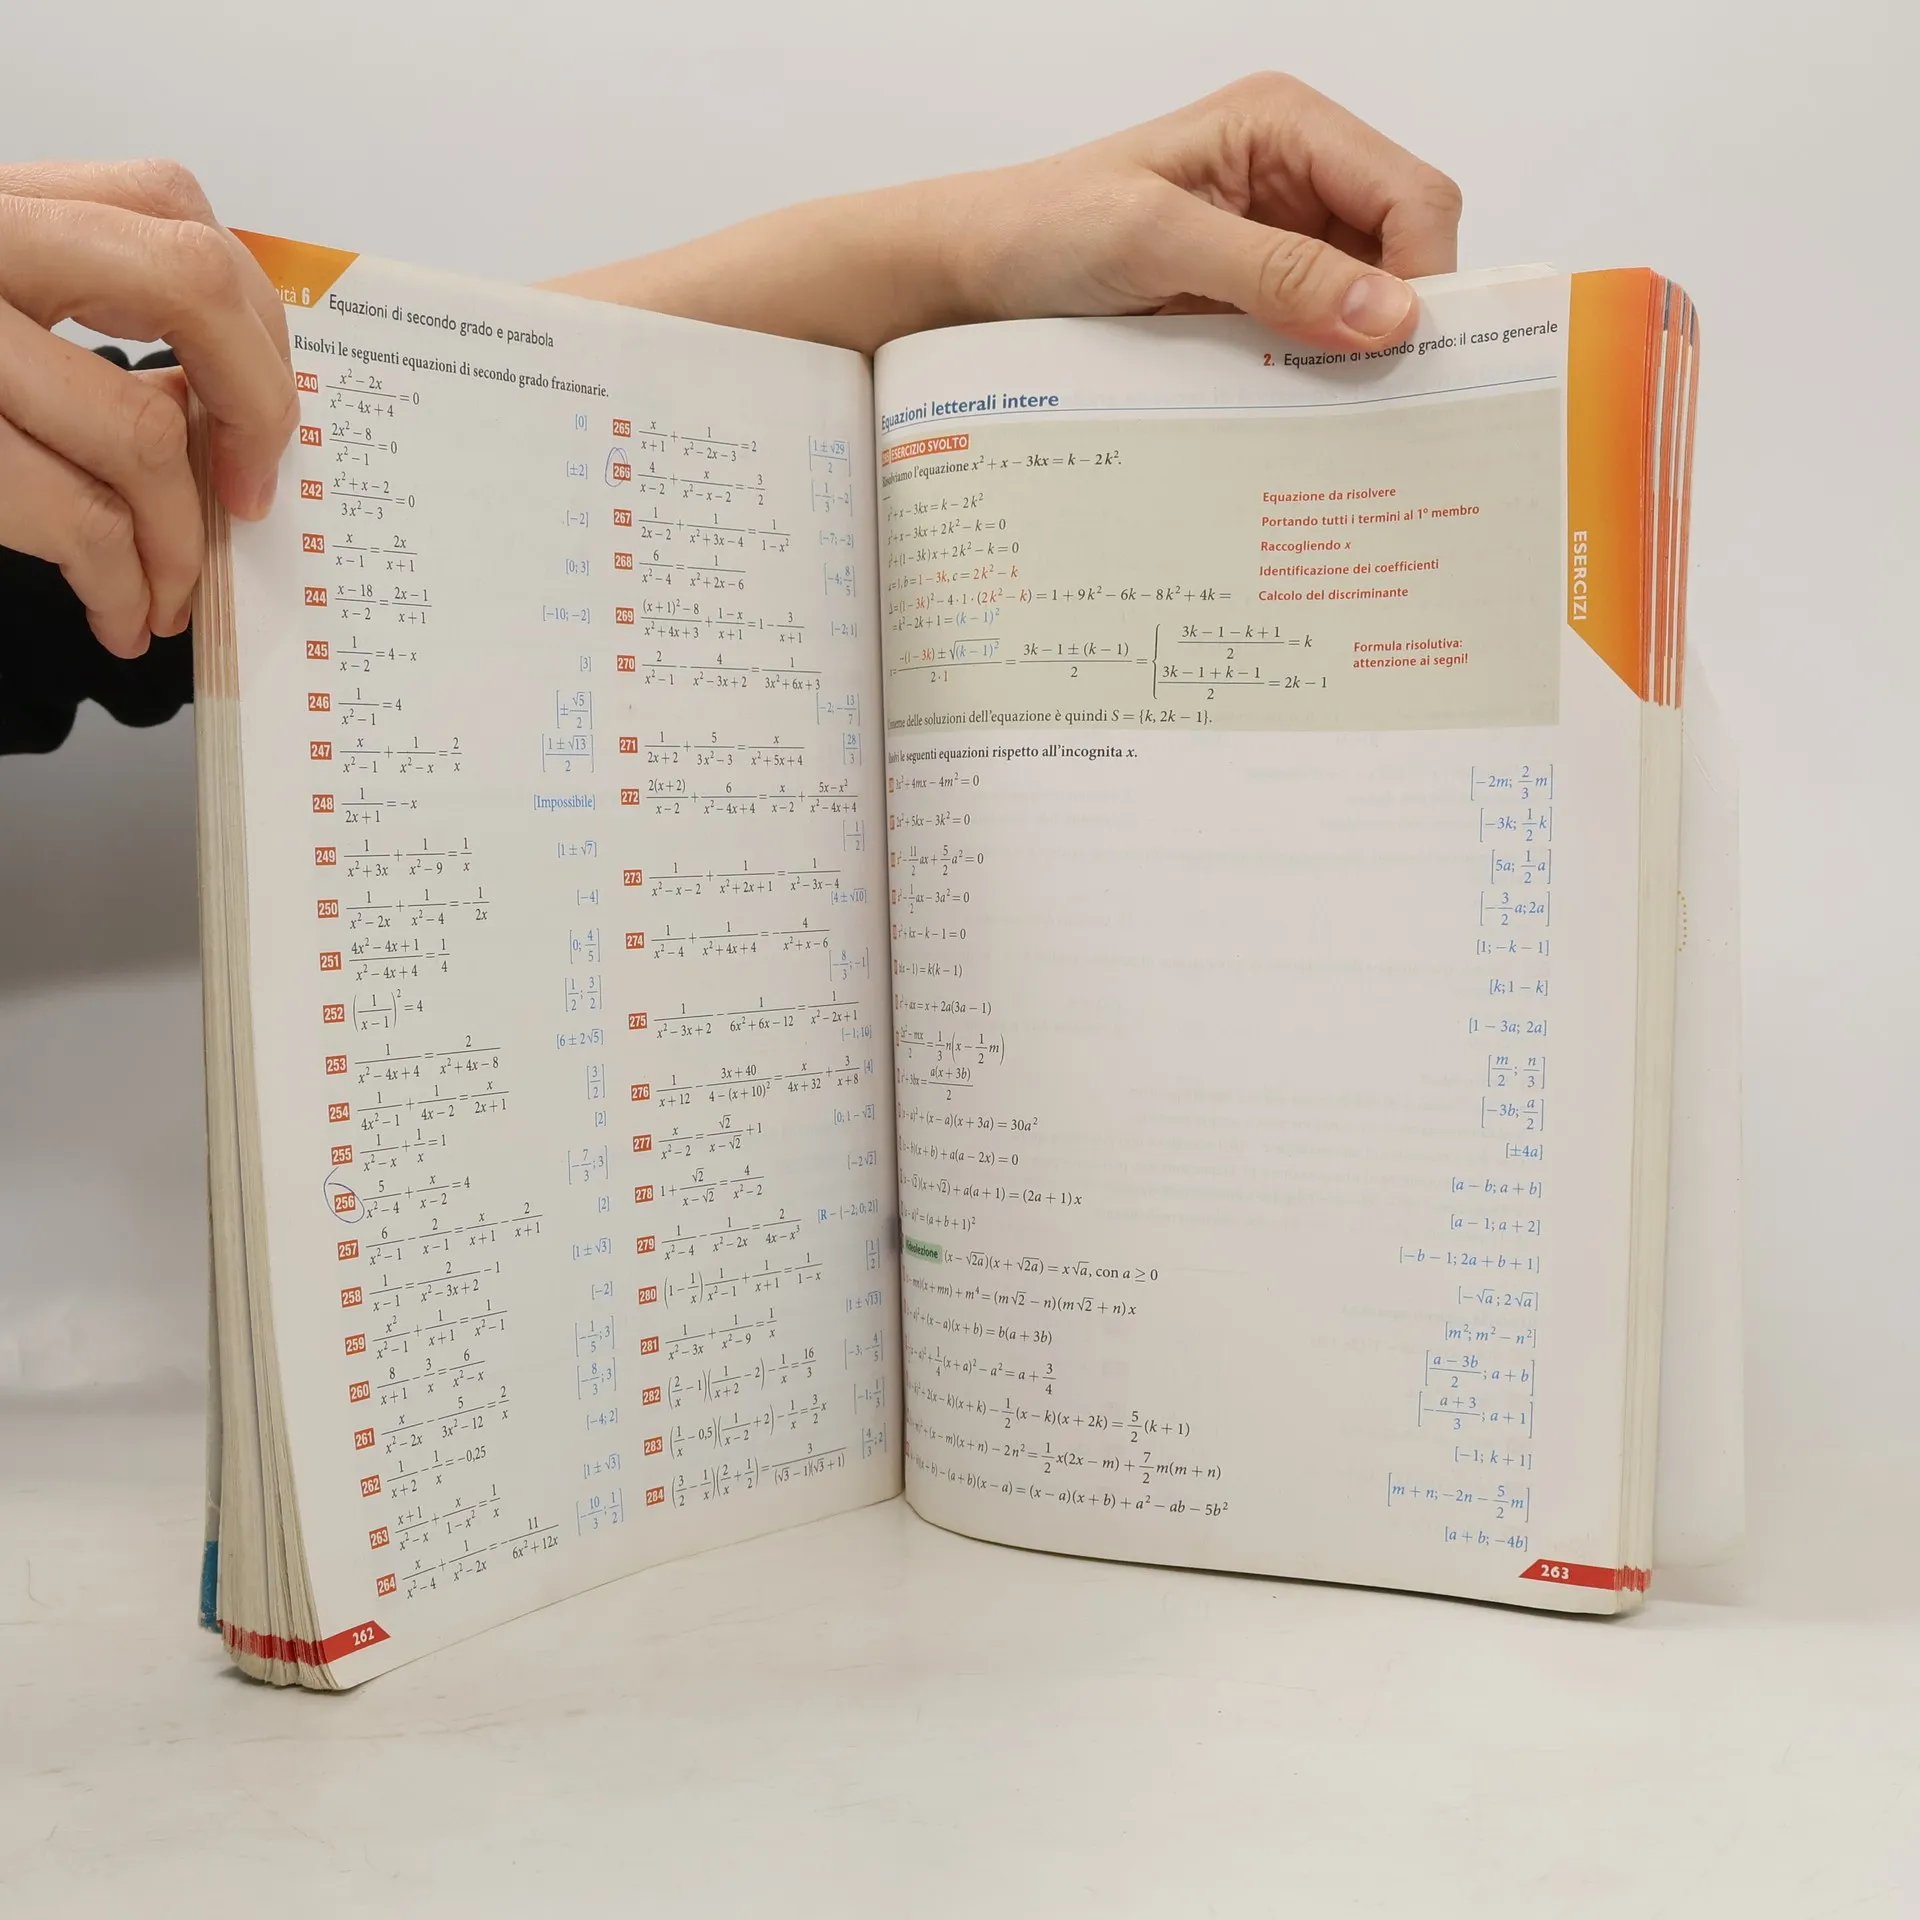 ità 6 Equazioni di secondo grado e parabola
Risolvi le seguenti equazioni di secondo grado frazionarie.
240 (x² − 2x)/(x² − 4x + 4) = 0 [0]
241 (2x² − 8)/(x² − 1) = 0 [±2]
242 (x² + x − 2)/(3x² − 3) = 0 [−2]
243 x/(x − 1) = 2x/(x + 1) [0; 3]
244 (x − 18)/(x − 2) = (2x − 1)/(x + 1) [−10; −2]
245 1/(x − 2) = 4 − x [3]
246 1/(x² − 1) = 4 [±√5/2]
247 x/(x² − 1) + 1/(x² − x) = 2/x [(1 ± √13)/2]
248 1/(2x + 1) = −x [Impossibile]
249 1/(x² + 3x) + 1/(x² − 9) = 1/x [1 ± √7]
250 1/(x² − 2x) + 1/(x² − 4) = −1/2x [−4]
251 (4x² − 4x + 1)/(x² − 4x + 4) = 1/4 [0; 4/5]
252 (1/(x − 1))² = 4 [1/2; 3/2]
253 1/(x² − 4x + 4) = 2/(x² + 4x − 8) [6 ± 2√5]
254 1/(4x² − 1) + 1/(4x − 2) = x/(2x + 1) [3/2]
255 1/(x² − x) + 1/x = 1 [2]
256 5/(x² − 4) + x/(x − 2) = 4 [−7/3; 3]
257 6/(x² − 1) − 2/(x − 1) = x/(x + 1) − 2/(x + 1) [2]
258 1/(x − 1) = 2/(x² − 3x + 2) − 1 [1 ± √3]
259 x²/(x² − 1) + 1/(x + 1) = 1/(x² − 1) [−2]
260 8/(x + 1) − 3/x = 6/(x² − x) [−1/5; 3]
261 x/(x² − 2x) − 5/(3x² − 12) = 2/x [−8/3; 3]
262 1/(x + 2) − 1/x = −0,25 [−4; 2]
263 (x + 1)/(x² − x) + x/(1 − x²) = 1/x [1 ± √3]
264 x/(x² − 4) + 1/(x² − 2x) = −11/(6x² + 12x) [−10/3; 1/2]
262
265 x/(x + 1) + 1/(x² − 2x − 3) = 2 [(1 ± √29)/2]
266 4/(x − 2) + x/(x² − x − 2) = −3/2 [−1/3; −2]
267 1/(2x − 2) + 1/(x² + 3x − 4) = 1/(1 − x²) [−7; −2]
268 6/(x² − 4) = 1/(x² + 2x − 6) [−4; 8/5]
269 ((x + 1)² − 8)/(x² + 4x + 3) + (1 − x)/(x + 1) = 1 − 3/(x + 1) [−2; 1]
270 2/(x² − 1) − 4/(x² − 3x + 2) = 1/(3x² + 6x + 3)
[−2; −13/7]
271 1/(2x + 2) + 5/(3x² − 3) = x/(x² + 5x + 4) [28/3]
272 2(x + 2)/(x − 2) + 6/(x² − 4x + 4) = x/(x − 2) + (5x − x²)/(x² − 4x + 4)
[−1/2]
273 1/(x² − x − 2) + 1/(x² + 2x + 1) = 1/(x² − 3x − 4)
[4 ± √10]
274 1/(x² − 4) + 1/(x² + 4x + 4) = −4/(x² + x − 6)
[−8/3; −1]
275 1/(x² − 3x + 2) − 1/(6x² + 6x − 12) = 1/(x² − 2x + 1)
[−1; 10]
276 1/(x + 12) − (3x + 40)/(4 − (x + 10)²) = x/(4x + 32) + 3/(x + 8) [4]
277 x/(x² − 2) = √2/(x − √2) + 1 [0; 1 − √2]
278 1 + √2/(x − √2) = 4/(x² − 2) [−2√2]
279 1/(x² − 4) − 1/(x² − 2x) = 2/(4x − x³) [R − {−2; 0; 2}]
280 (1 − 1/x) 1/(x² − 1) + 1/(x + 1) = 1/(1 − x) [1/2]
281 1/(x² − 3x) + 1/(x² − 9) = 1/x [1 ± √13]
282 (2/x − 1)(1/(x + 2) − 2) − 1/x = 16/3 [−3; −4/5]
283 (1/x − 0,5)(1/(x − 2) + 2) − 1/x = 3/2 x [−1; 1/3]
284 (3/2 − 1/x)(2/x + 1/2) = 3/((√3 − 1)(√3 + 1)) [4/3; 2]
2. Equazioni di secondo grado: il caso generale
Equazioni letterali intere
ESERCIZIO SVOLTO
Risolviamo l'equazione x² + x − 3kx = k − 2k².
x² + x − 3kx = k − 2k² Equazione da risolvere
x² + x − 3kx + 2k² − k = 0 Portando tutti i termini al 1° membro
x² + (1 − 3k)x + 2k² − k = 0 Raccogliendo x
a = 1, b = 1 − 3k, c = 2k² − k Identificazione dei coefficienti
Δ = (1 − 3k)² − 4 · 1 · (2k² − k) = 1 + 9k² − 6k − 8k² + 4k = Calcolo del discriminante
= k² − 2k + 1 = (k − 1)²
= (−(1 − 3k) ± √(k − 1)²)/(2 · 1) = (3k − 1 ± (k − 1))/2 = { (3k − 1 − k + 1)/2 = k
(3k − 1 + k − 1)/2 = 2k − 1
Formula risolutiva:
attenzione ai segni!
delle soluzioni dell'equazione è quindi S = {k, 2k − 1}.
le seguenti equazioni rispetto all'incognita x.
3x² + 4mx − 4m² = 0 [−2m; 2/3 m]
2x² + 5kx − 3k² = 0 [−3k; 1/2 k]
x² − 11/2 ax + 5/2 a² = 0 [5a; 1/2 a]
x² − 1/2 ax − 3a² = 0 [−3/2 a; 2a]
x² + kx − k − 1 = 0 [1; −k − 1]
x(x − 1) = k(k − 1) [k; 1 − k]
x² + ax = x + 2a(3a − 1) [1 − 3a; 2a]
(2x² − mx)/2 = 1/3 n(x − 1/2 m) [m/2; n/3]
x² + 3bx = a(x + 3b)/2 [−3b; a/2]
(x − a)² + (x − a)(x + 3a) = 30a² [±4a]
(x − b)(x + b) + a(a − 2x) = 0 [a − b; a + b]
(x − √2)(x + √2) + a(a + 1) = (2a + 1)x [a − 1; a + 2]
(x − a)² = (a + b + 1)² [−b − 1; 2a + b + 1]
(x − √2a)(x + √2a) = x√a, con a ≥ 0 [−√a; 2√a]
(x − mn)(x + mn) + m⁴ = (m√2 − n)(m√2 + n)x [m²; m² − n²]
+ (x − a)(x + b) = b(a + 3b) [(a − 3b)/2; a + b]
+ 1/4 (x + a)² − a² = a + 3/4 [−(a + 3)/3; a + 1]
+ 2(x − k)(x + k) − 1/2 (x − k)(x + 2k) = 5/2 (k + 1) [−1; k + 1]
+ (x − m)(x + n) − 2n² = 1/2 x(2x − m) + 7/2 m(m + n) [m + n; −2n − 5/2 m]
(x + b) − (a + b)(x − a) = (x − a)(x + b) + a² − ab − 5b² [a + b; −4b]
ESERCIZI
263